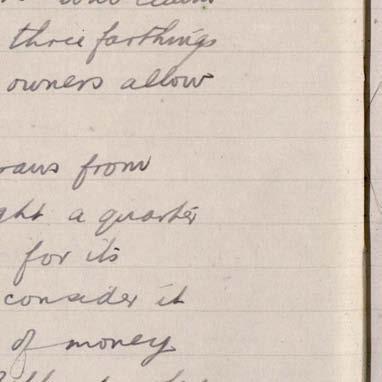 three farthings
owners allow
from
a quarter
for its
consider it
of money